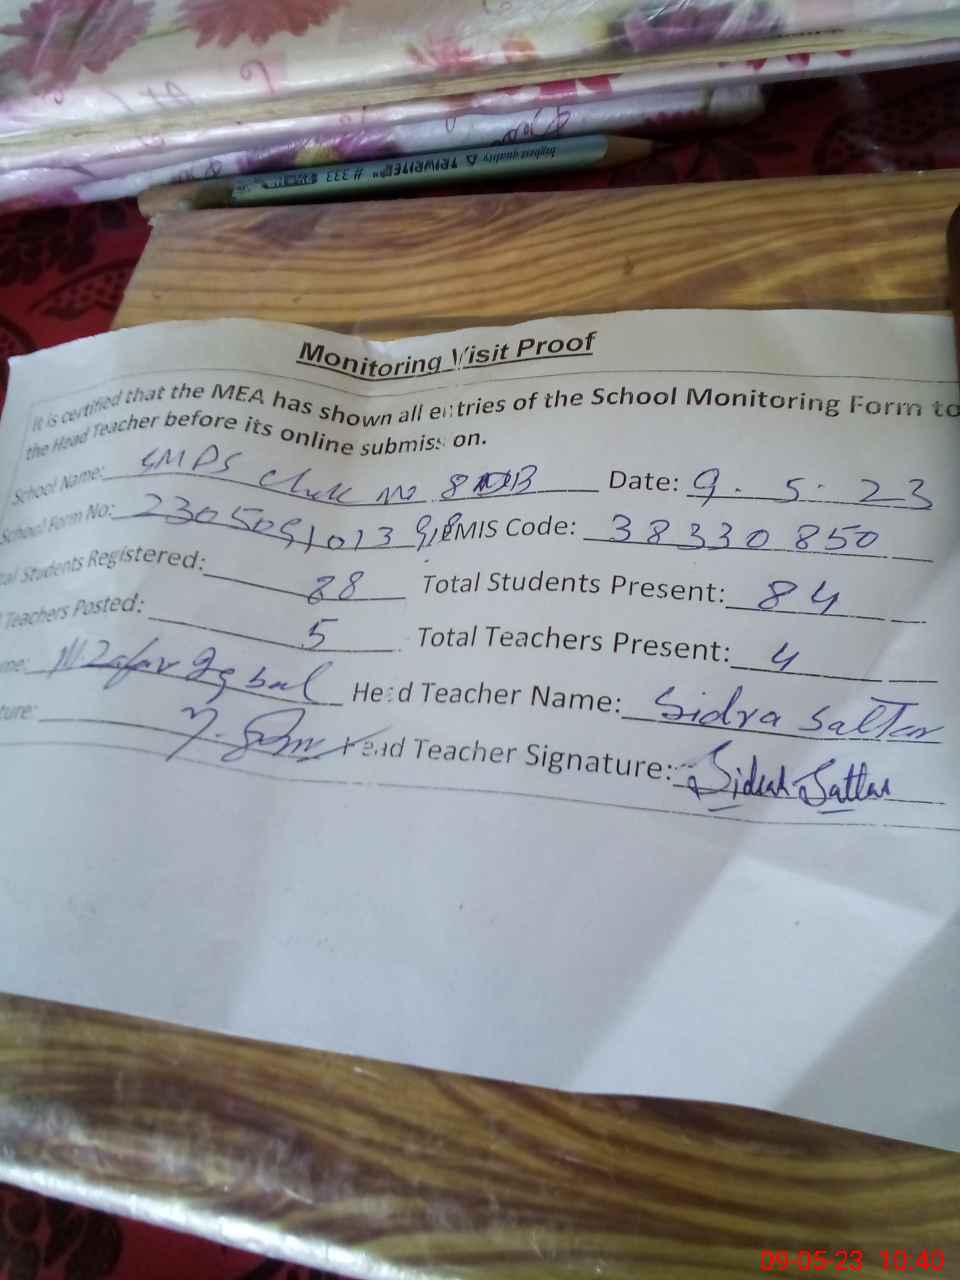 highest quality TRIWRITER # 333
Monitoring Visit Proof
It is certified that the MEA has shown all entries of the School Monitoring Form to
the Head Teacher before its online submission.
School Name: GMPS Chak No 8 DB Date: 9.5.23
School Form No: 2305091013 EMIS Code: 38330850
al Students Registered: 88 Total Students Present: 84
Teachers Posted: 5 Total Teachers Present: 4
me: M Zafar Iqbal Head Teacher Name: Sidra Sattar
ture: Head Teacher Signature: Sidrah Sattar
09-05-23 10:40